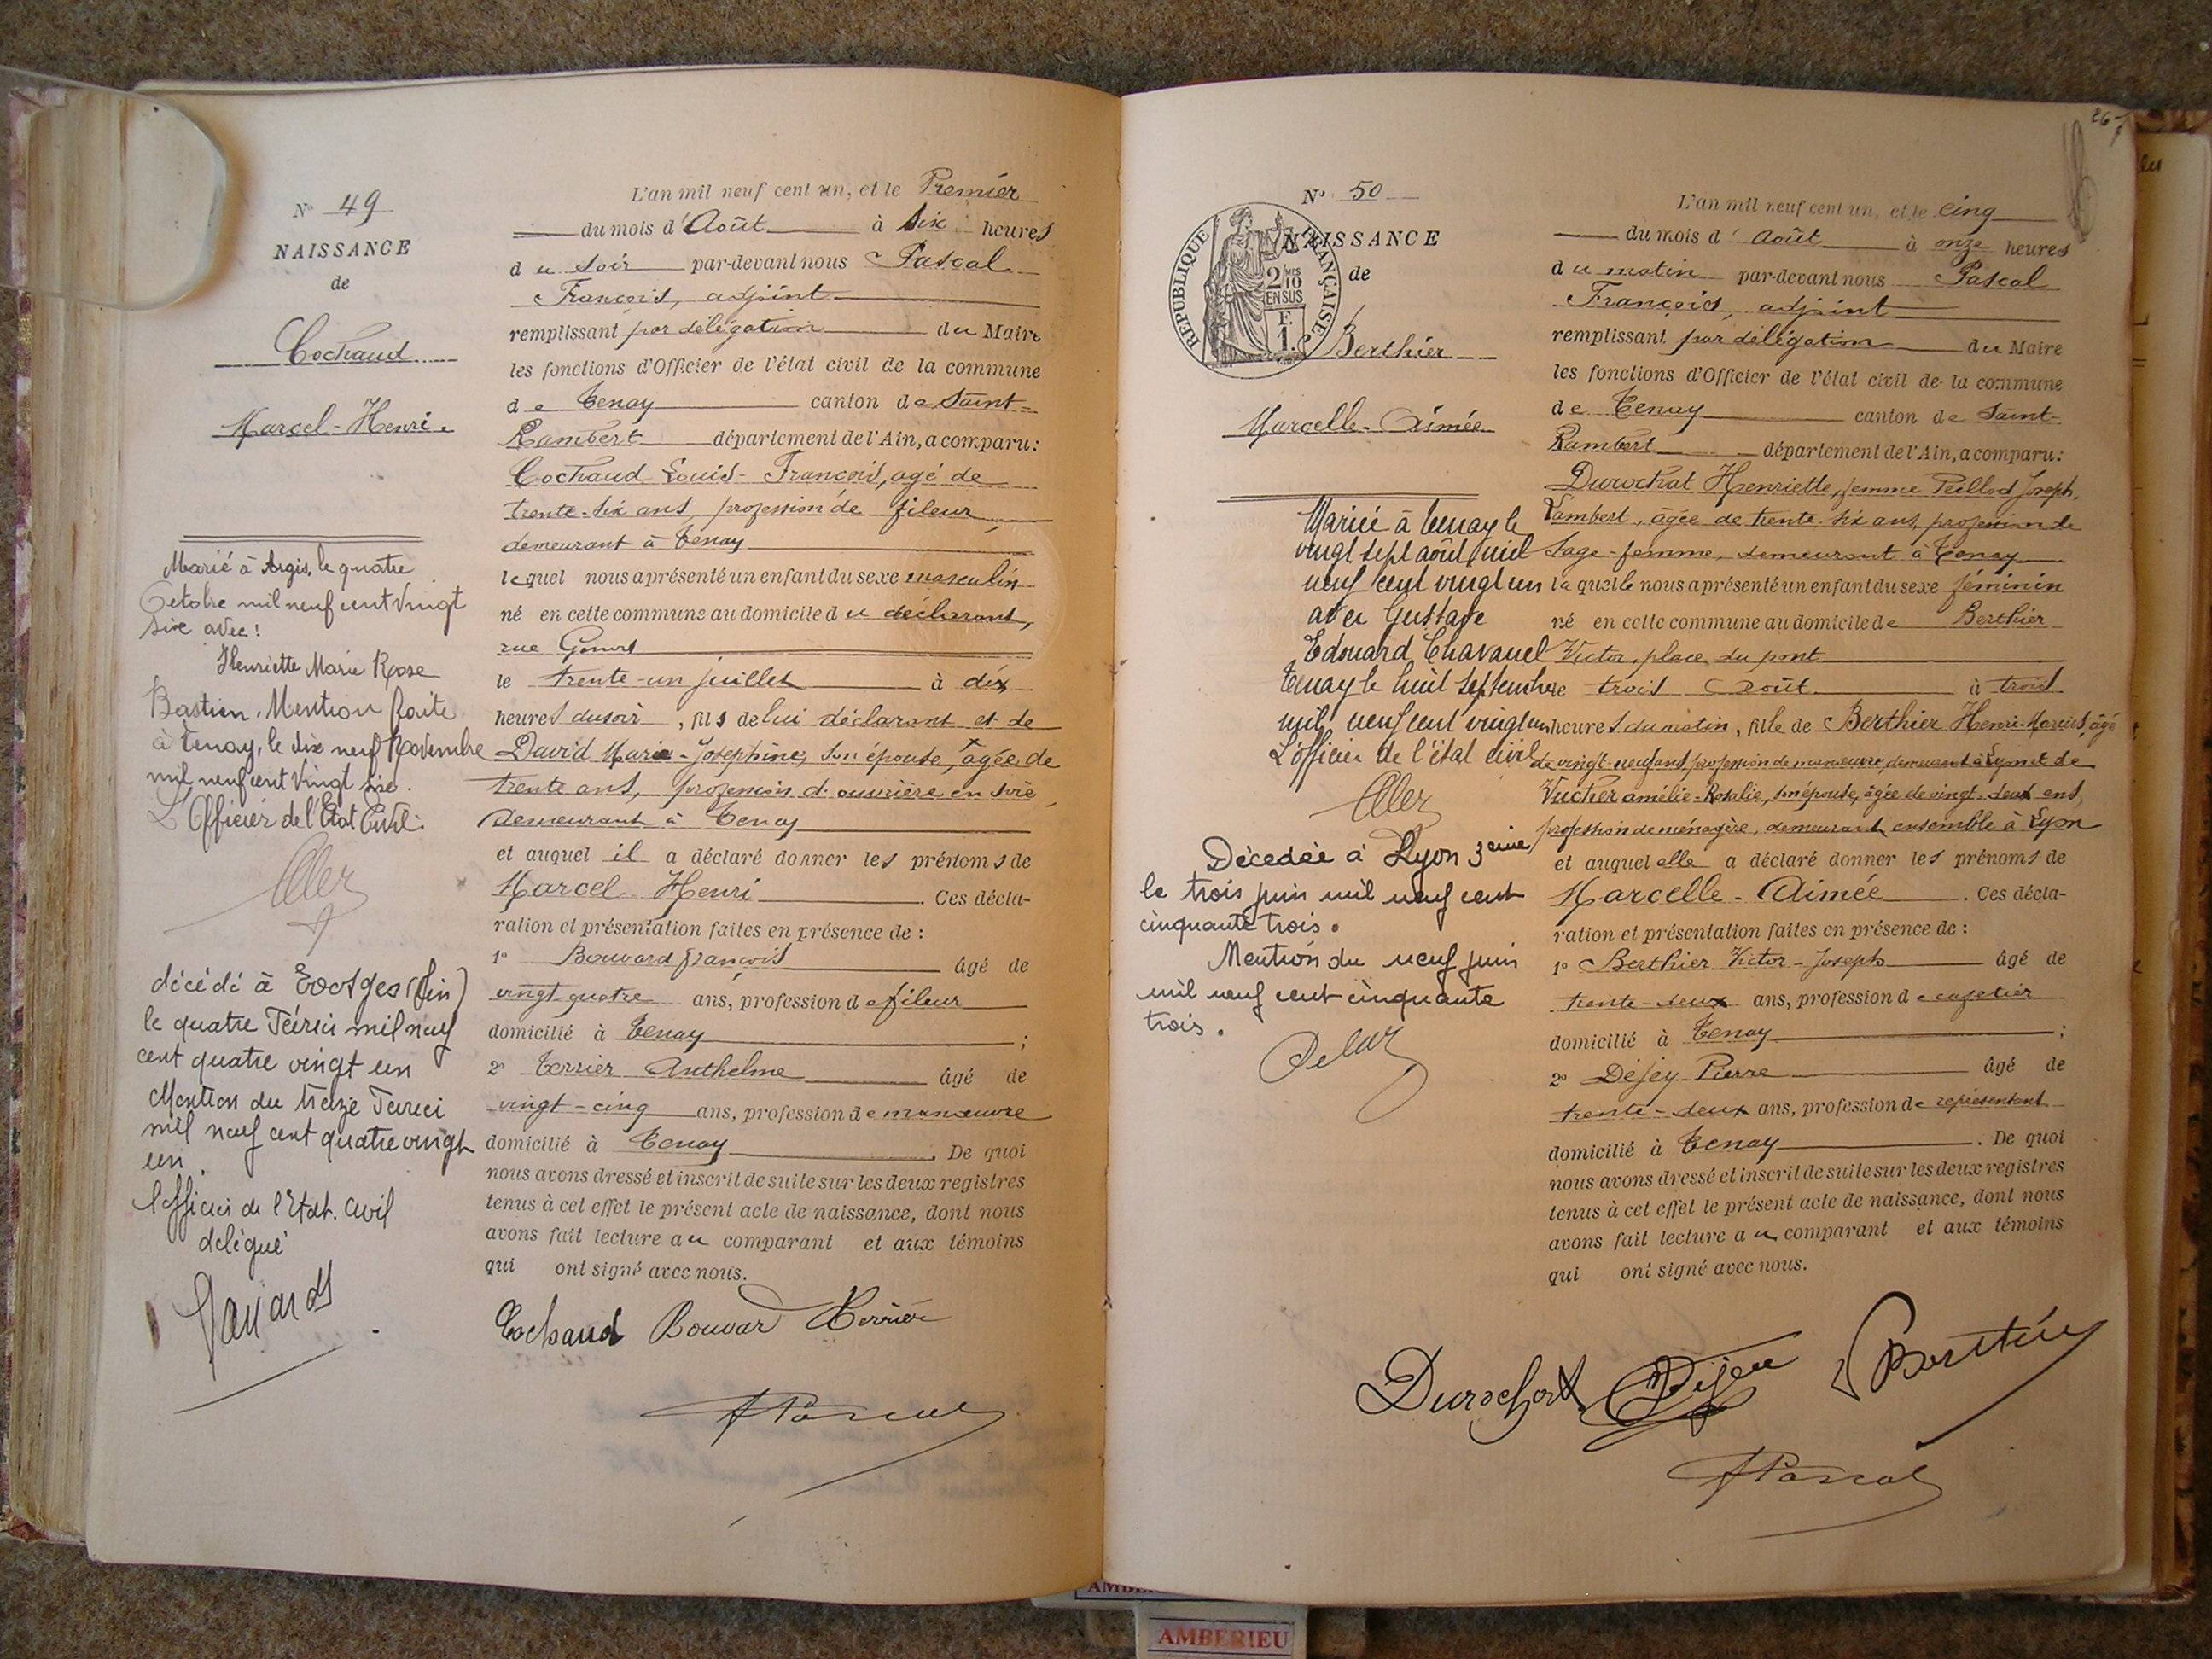 N° 49
NAISSANCE
de
Cochaud
Marcel-Henri.
Marié à Argis, le quatre
Octobre mil neuf cent vingt
six avec :
Henriette Marie Rose
Bastien. Mention faite
à Tenay, le dix neuf Novembre
mil neuf cent vingt six.
L'Officier de l'Etat Civil.
décédé à (Ain)
le quatre mil neuf
cent quatre vingt un
Mention du treize
mil neuf cent quatre vingt
un.
l'officier de l'Etat. Civil
délégué
L'an mil neuf cent un, et le Premier
du mois d'Août à six heures
du soir par-devant nous Pascal
François, adjoint
remplissant par délégation du Maire
les fonctions d'Officier de l'état civil de la commune
de Tenay canton de Saint-
Rambert département de l'Ain, a comparu :
Cochaud Louis-François, agé de
trente-six ans, profession de fileur
demeurant à Tenay
lequel nous a présenté un enfant du sexe masculin
né en cette commune au domicile du déclarant,
rue
le trente-un juillet à dix
heures du soir, fils de lui déclarant et de
David Marie-Joséphine, son épouse, agée de
trente ans, profession d'ouvrière en soie
demeurant à Tenay
et auquel il a déclaré donner les prénoms de
Marcel Henri. Ces décla-
ration et présentation faites en présence de :
1° Bouvard François âgé de
vingt quatre ans, profession de fileur
domicilié à Tenay ;
2° Terrier Anthelme âgé de
vingt-cinq ans, profession de manœuvre
domicilié à Tenay. De quoi
nous avons dressé et inscrit de suite sur les deux registres
tenus à cet effet le présent acte de naissance, dont nous
avons fait lecture au comparant et aux témoins
qui ont signé avec nous.
Cochaud Bouvard Terrier
F Pascal
N° 50
NAISSANCE
de
RÉPUBLIQUE FRANÇAISE
2/10 EN SUS
F.
1.
Berthier
Marcelle-Aimée
Mariée à Tenay le
vingt sept août mil
neuf cent vingt un
avec Gustave
Edouard Chavanel
Tenay le huit septembre
mil neuf cent vingt un
L'officier de l'état civil
Décédée à Lyon 3eme
le trois juin mil neuf cent
cinquante trois.
Mention du neuf juin
mil neuf cent cinquante
trois.
L'an mil neuf cent un, et le cinq
du mois d'Août à onze heures
du matin par-devant nous Pascal
François, adjoint
remplissant par délégation du Maire
les fonctions d'Officier de l'état civil de la commune
de Tenay canton de Saint-
Rambert département de l'Ain, a comparu :
Durochat Henriette, femme Peillod Joseph,
Lambert, âgée de trente-six ans, profession de
Sage-femme, demeurant à Tenay
laquelle nous a présenté un enfant du sexe féminin
né en cette commune au domicile de Berthier
Victor, place du pont
le trois Août à trois
heures du matin, fille de Berthier Henri-Marius, âgé
de vingt-neuf ans, profession de manœuvre, demeurant à Lyon et de
Vuthier amélie-Rosalie, son épouse, âgée de vingt-deux ans,
profession de ménagère, demeurant ensemble à Lyon
et auquel elle a déclaré donner les prénoms de
Marcelle-Aimée. Ces décla-
ration et présentation faites en présence de :
1° Berthier Victor-Joseph âgé de
trente-deux ans, profession de cafetier
domicilié à Tenay ;
2° Dejey Pierre âgé de
trente-deux ans, profession de représentant
domicilié à Tenay. De quoi
nous avons dressé et inscrit de suite sur les deux registres
tenus à cet effet le présent acte de naissance, dont nous
avons fait lecture au comparant et aux témoins
qui ont signé avec nous.
Durochat Dejey Berthier
F Pascal
AMBERIEU